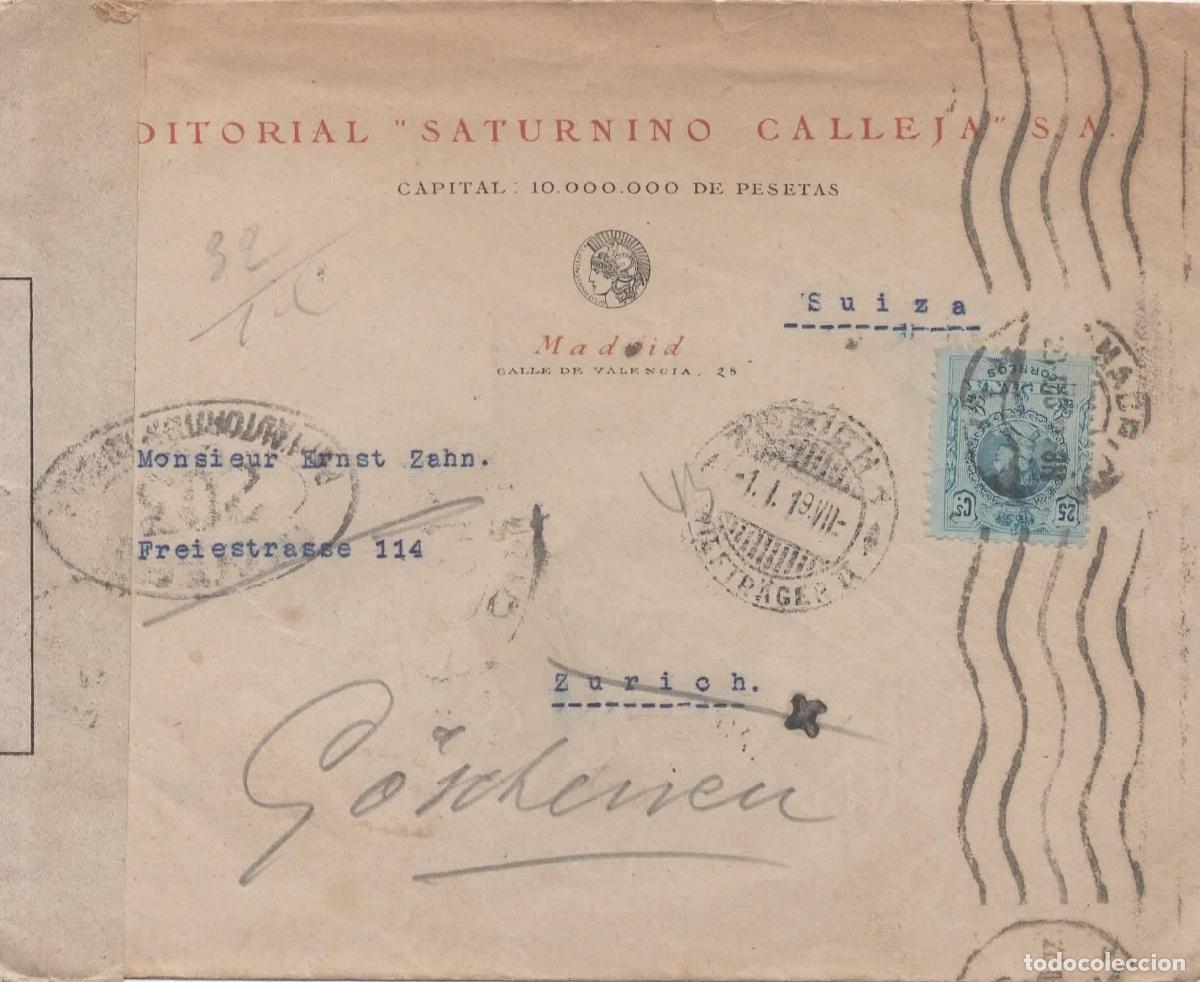 DITORIAL "SATURNINO CALLEJA" S. A.
CAPITAL: 10.000.000 DE PESETAS
32
Suiza
Madrid
CALLE DE VALENCIA, 28
CORREOS
25 Cs
MADRID
Monsieur Ernst Zahn.
202
Freiestrasse 114
-1.I.19.VII-
BRIEFTRÄGER
Zurich.
Göschenen
todocoleccion